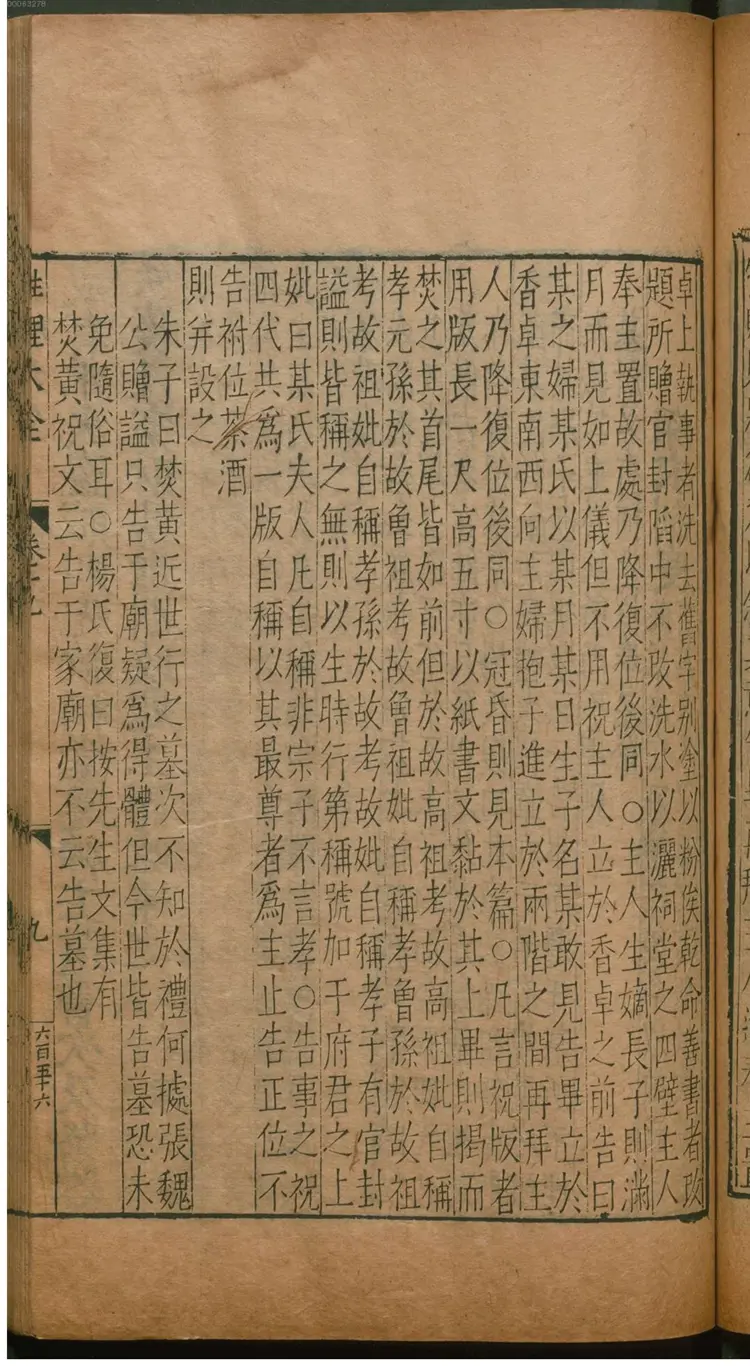 卓上執事者洗去舊字别塗以粉俟乾命善書者改
題所贈官封䧟中不改洗水以灑祠堂之四壁主人
奉主置故處乃降復位後同○主人生嫡長子則滿
月而見如上儀但不用祝主人立於香卓之前告曰
某之婦某氏以某月某日生子名某敢見告畢立於
香卓東南西向主婦抱子進立於兩階之間再拜主
人乃降復位後同○冠昏則見本篇○凡言祝版者
用版長一尺高五寸以紙書文黏於其上畢則揭而
焚之其首尾皆如前但於故高祖考故高祖妣自稱
孝元孫於故曾祖考故曾祖妣自稱孝曾孫於故祖
考故祖妣自稱孝孫於故考故妣自稱孝子有官封
諡則皆稱之無則以生時行第稱號加于府君之上
妣曰某氏夫人凡自稱非宗子不言孝○告事之祝
四代共爲一版自稱以其最尊者爲主止告正位不
告祔位茶酒
則并設之
朱子曰焚黃近世行之墓次不知於禮何據張魏
公贈諡只告于廟疑爲得體但今世皆告墓恐未
免隨俗耳○楊氏復曰按先生文集有
焚黃祝文云告于家廟亦不云告墓也
性理大全
卷十九
九
六百五十六
00063278